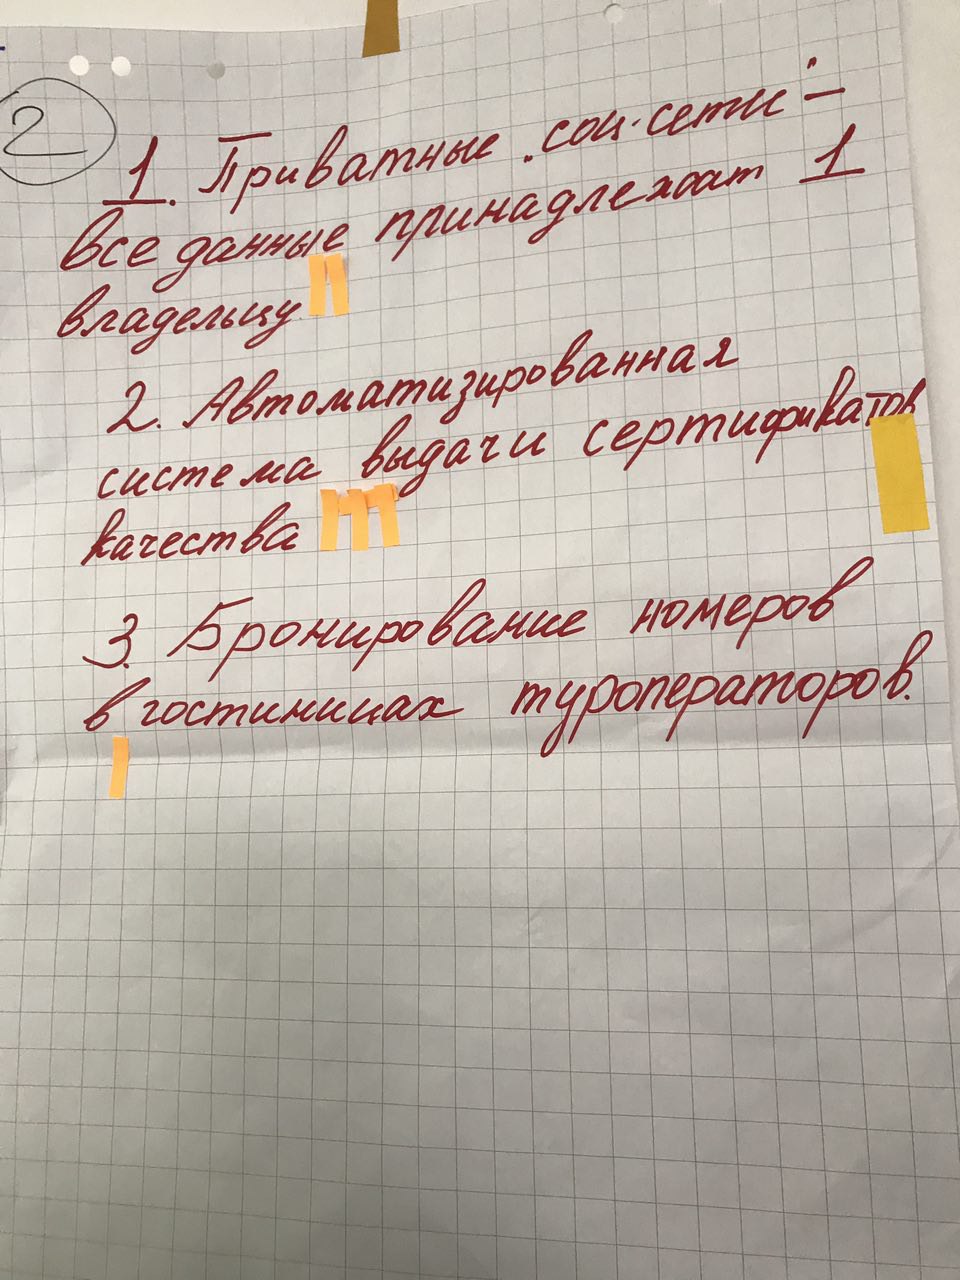 2
1. Приватные "соц. сети" –
все данные принадлежат 1
владельцу
2. Автоматизированная
система выдачи сертификатов
качества
3. Бронирование номеров
в гостиницах туроператоров.